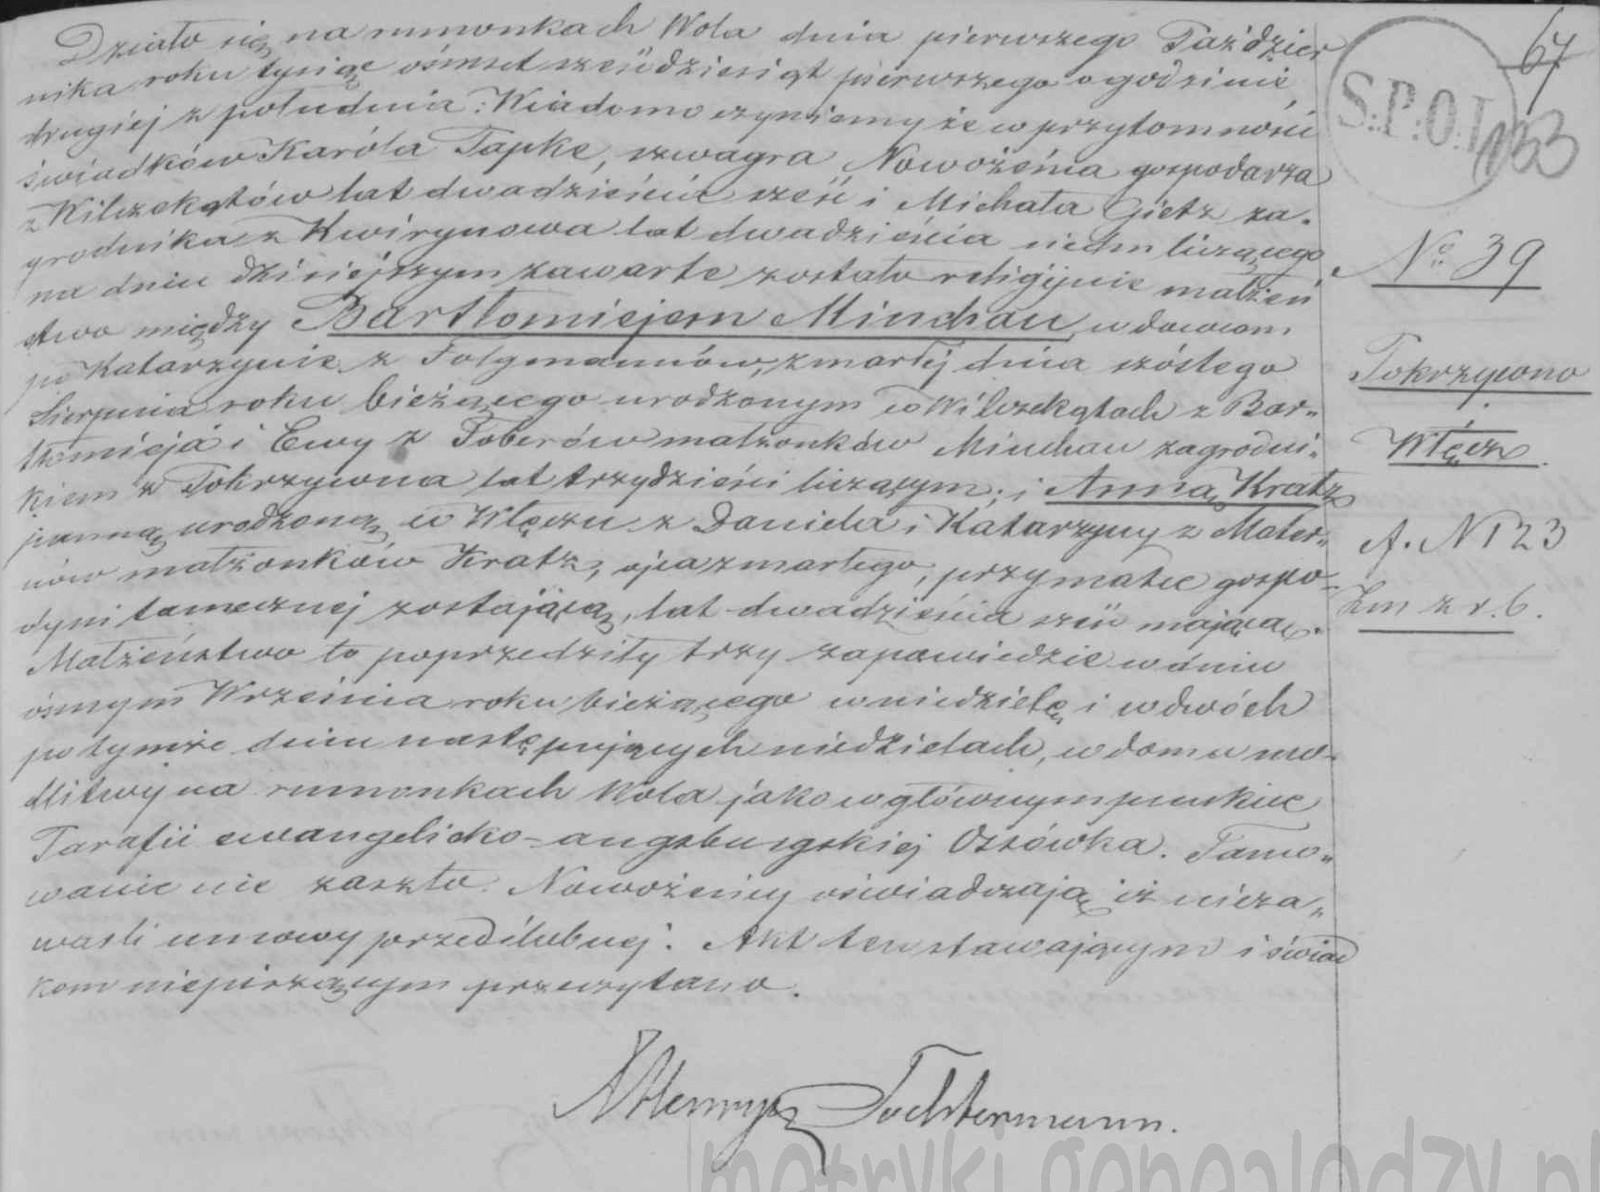 Działo się na rumunkach Wola dnia pierwszego Paździer
nika roku tysiąc ośmset sześćdziesiąt pierwszego o godzinie
drugiej z południa. Wiadomo czyniemy że w przytomności
świadków Karóla Papke, szwagra Nowożeńca gospodarza
z Wilczekątów lat dwadzieście sześć i Michała Gietz za-
grodnika z Kwirynowa lat dwadzieścia siedm liczącego
na dniu dzisiejszym zawarte zostało religijnie małżeń
stwo między Bartłomiejem Minchau wdowcem
po Katarzynie z Folgmannów, zmarłej dnia szóstego
Sierpnia roku bieżącego urodzonym w Wilczekątach z Bar-
tłomieja i Ewy z Toberów małżonków Minchau zagrodni-
kiem z Pokrzywna lat trzydzieści liczącym; i Anną Kratz
panną urodzoną w Włęczu z Daniela i Katarzyny z Mater-
nów małżonków Kratz, ojca zmarłego, przy matce gospo-
dyni tamecznej zostającą, lat dwadzieścia sześć mającą.
Małżeństwo to poprzedziły trzy zapowiedzie w dniu
ósmym Września roku bieżącego w niedzielę i w dwóch
po tymże dniu następujących niedzielach, w domu mo-
dlitwy na rumunkach Wola jako w głównym punkcie
Parafii ewangelicko-augsburgskiej Ossówka. Tamo-
wanie nie zaszło. Nowożeńcy oświadczają iż nieza-
warli umowy przedślubnej. Akt ten stawającym i świad
kom niepiszącym przeczytano.
Henryk Tochtermann.
67
S.P.O.L
133
No 39
Pokrzywno
i
Włęcz.
A. N 123
Zm z r. 6.
metryki.genealodzy.pl